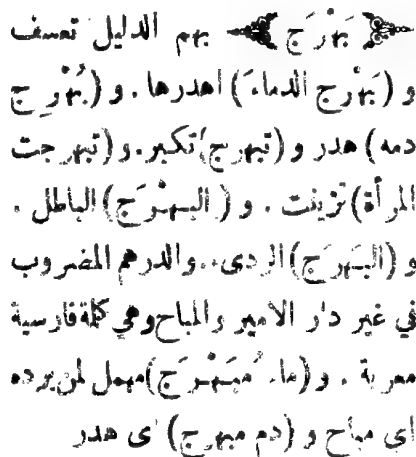 ﴿ بَهْرَج ﴾ بهم الدليل تعسف
و (بَهْرج الدماءَ) اهدرها . و (بُهْرِج
دمه) هدر و (تبهرج) تكبر . و (تبهرجت
المرأة) تزينت . و (البَهْرَج) الباطل .
و (البَهْرَج) الردىء . والدرهم المضروب
في غير دار الامير والمباح وهي كلمة فارسية
معربة . و (ماء مُبَهْرَج) مهمل لمن يرده
اي مباح و (دم مبهرج) اى هدر